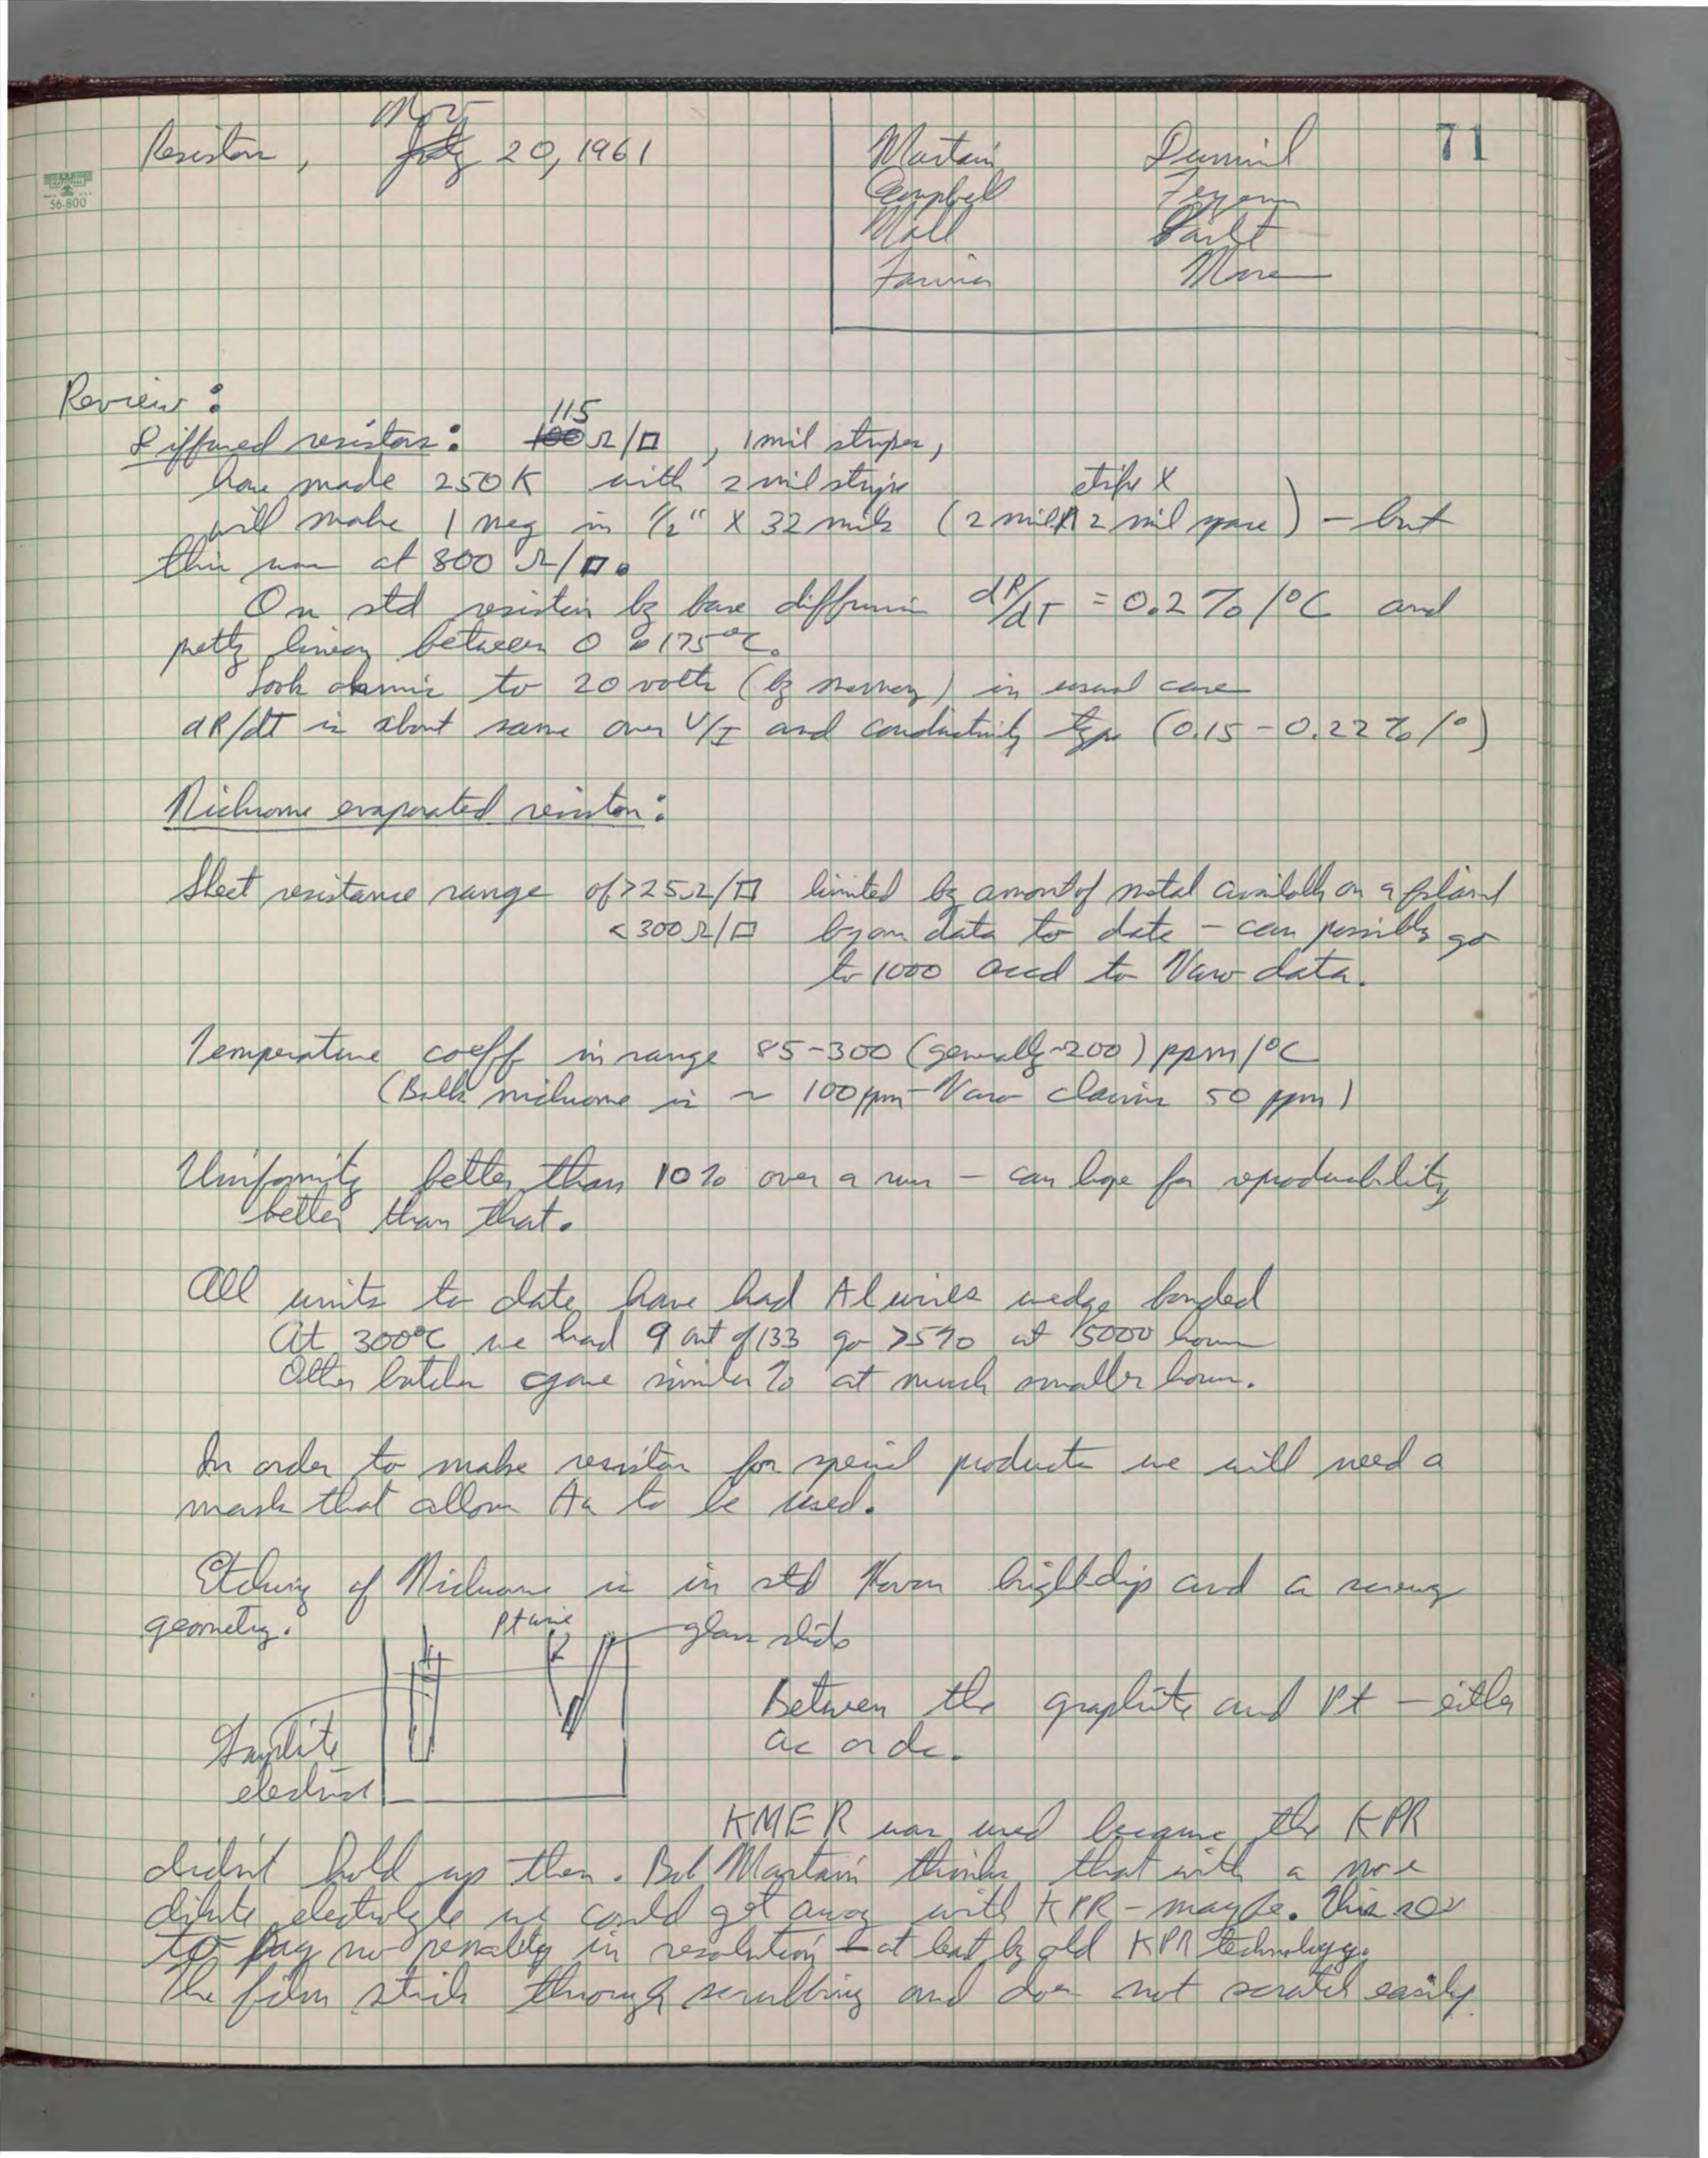 71
Nov
Resistors, July 20, 1961
Martain
Campbell
Mall
Farina
Ferguson
Moore
56-800
Review:
Diffused resistors: 100 115 Ω/□, 1 mil stripes,
have made 250K with 2 mil stripe
will make 1 meg in 1/2" X 32 mils (2 mil stripe X 2 mil space) - but
this was at 800 Ω/□.
On std resistors by base diffusion dR/dT = 0.2%/°C and
pretty linear between 0 to 175°C.
Look ohmic to 20 volts (by memory) in usual case
dR/dT is about same over V/I and conductivity type (0.15 - 0.22%/°)
Nichrome evaporated resistors:
Sheet resistance range of >25Ω/□ limited by amount of metal available on a filament
<300Ω/□ by our data to date - can possibly go
to 1000 accd to Varo data.
Temperature coeff in range 85-300 (generally ~200) ppm/°C
(Bulk nichrome is ~ 100ppm - Varo claims 50 ppm)
Uniformity better than 10% over a run - can hope for reproducibility
better than that.
All units to date have had Al wires wedge bonded
At 300°C we had 9 out of 133 go >5% at 5000 hours
Other batches gave similar % at much smaller hours.
In order to make resistors for special products we will need a
mask that allows Au to be used.
Etching of Nichrome is in std bright dip and a screwy
geometry.
Pt wire
glass slide
Graphite
electrode
Between the graphite and Pt - either
ac or dc.
KMER was used because the KPR
didn't hold up then. Bob Martain thinks that with a more
dilute electrolyte we could get away with KPR - maybe. This
to pay no penalty in resolution - at least by old KPR technology.
The film sticks through scrubbing and does not scratch easily.